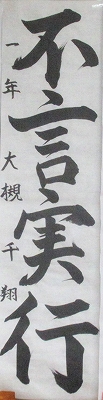 不言実行
一年 大槻千翔